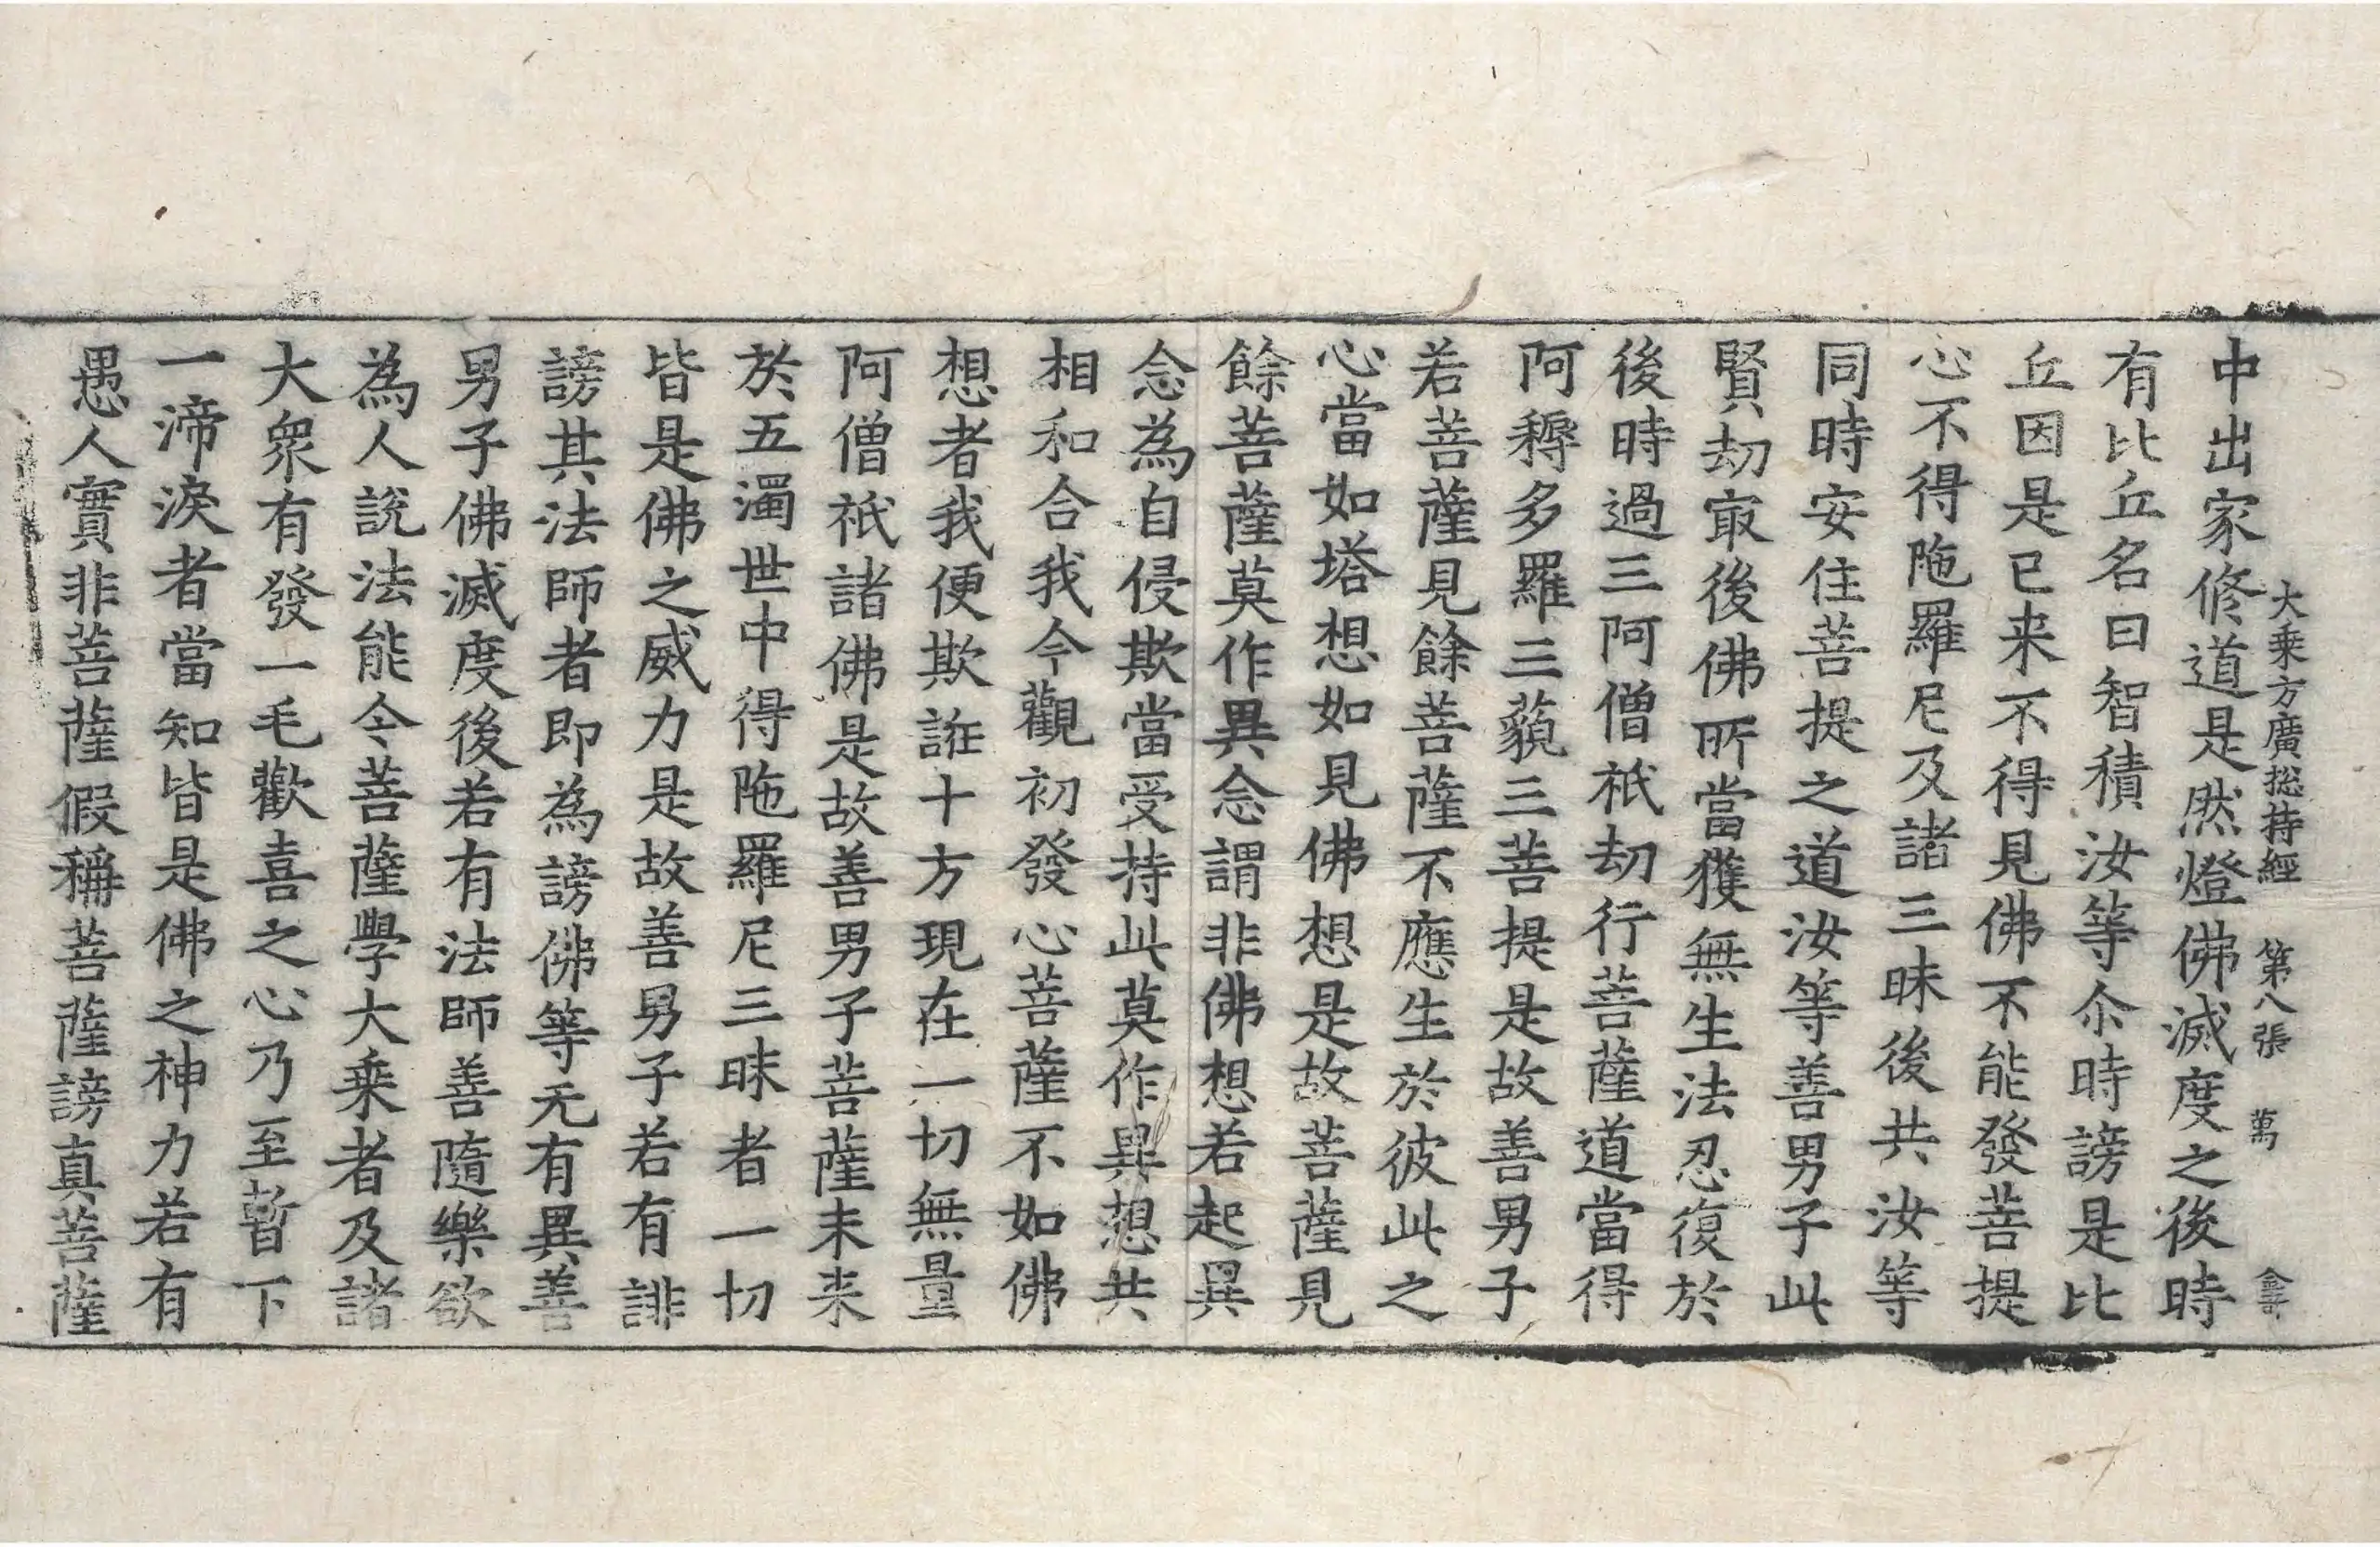 大乗方廣捴持經 第八張 萬
中出家修道是然燈佛滅度之後時
有比丘名曰智積汝等尒時謗是比
丘因是已来不得見佛不能發菩提
心不得陁羅尼及諸三昧後共汝等
同時安住菩提之道汝等善男子此
賢劫㝡後佛所當獲無生法忍復於
後時過三阿僧祇劫行菩薩道當得
阿耨多羅三藐三菩提是故善男子
若菩薩見餘菩薩不應生於彼此之
心當如塔想如見佛想是故菩薩見
餘菩薩莫作異念謂非佛想若起異
念為自侵欺當受持此莫作異想共
相和合我今觀初發心菩薩不如佛
想者我便欺誑十方現在一切無量
阿僧祇諸佛是故善男子菩薩未来
於五濁世中得陁羅尼三昧者一切
皆是佛之威力是故善男子若有誹
謗其法師者即為謗佛等无有異善
男子佛滅度後若有法師善隨樂欲
為人說法能令菩薩學大乗者及諸
大衆有發一毛歡喜之心乃至暫下
一渧淚者當知皆是佛之神力若有
愚人實非菩薩假稱菩薩謗真菩薩